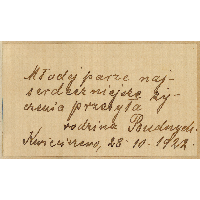 Młodej parze naj-
serdeczniejsze ży-
czenia przesyła
rodzina Budnych.
Kwieciszewo, 28-10-1922